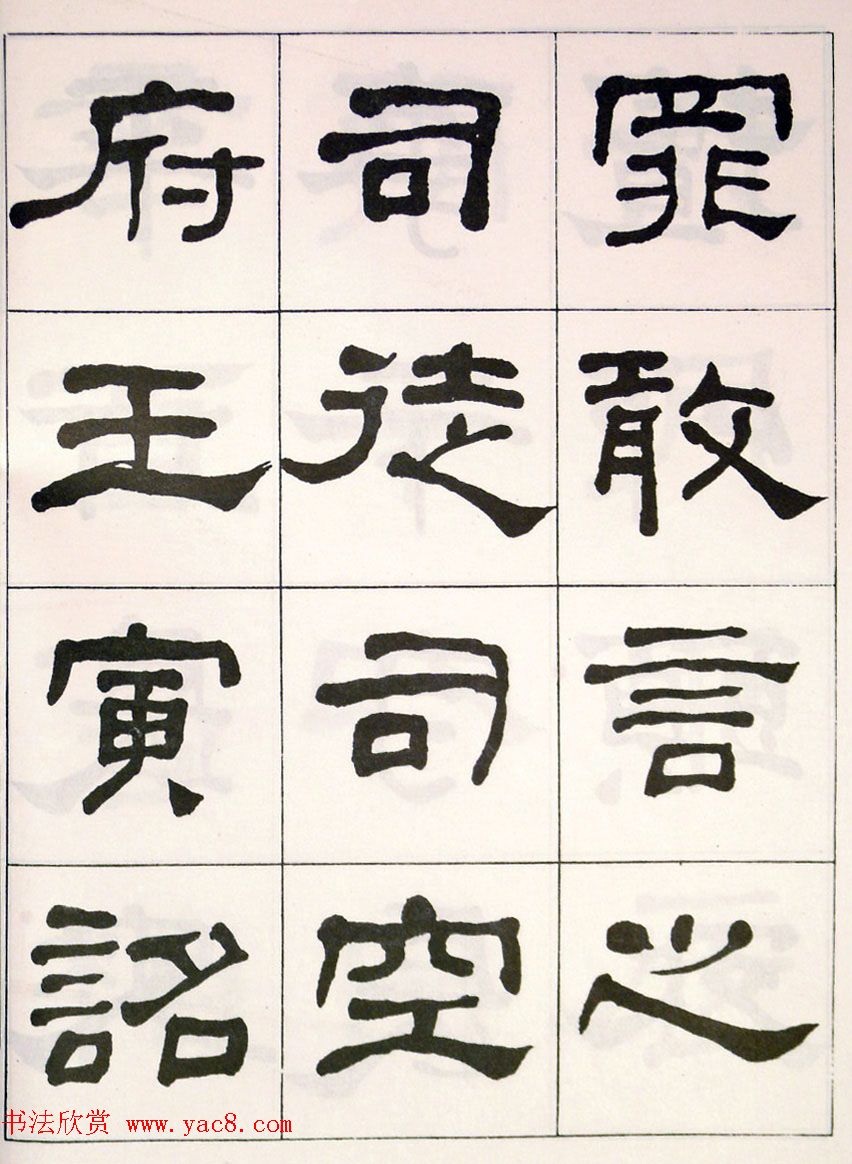 罪敢言之
司徒司空
府壬寅詔
书法欣赏 www.yac8.com